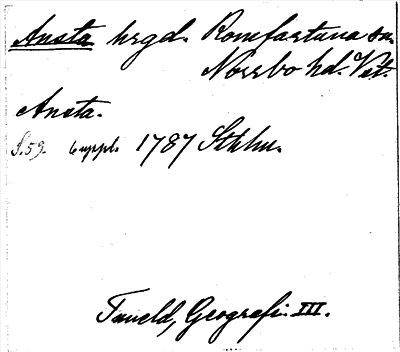 Ansta hrgd. Romfartuna sn.
Norrbo hd. Vst.
Ansta.
S. 59. 6 uppl. 1787 Sthlm.
Tuneld, Geografi III.